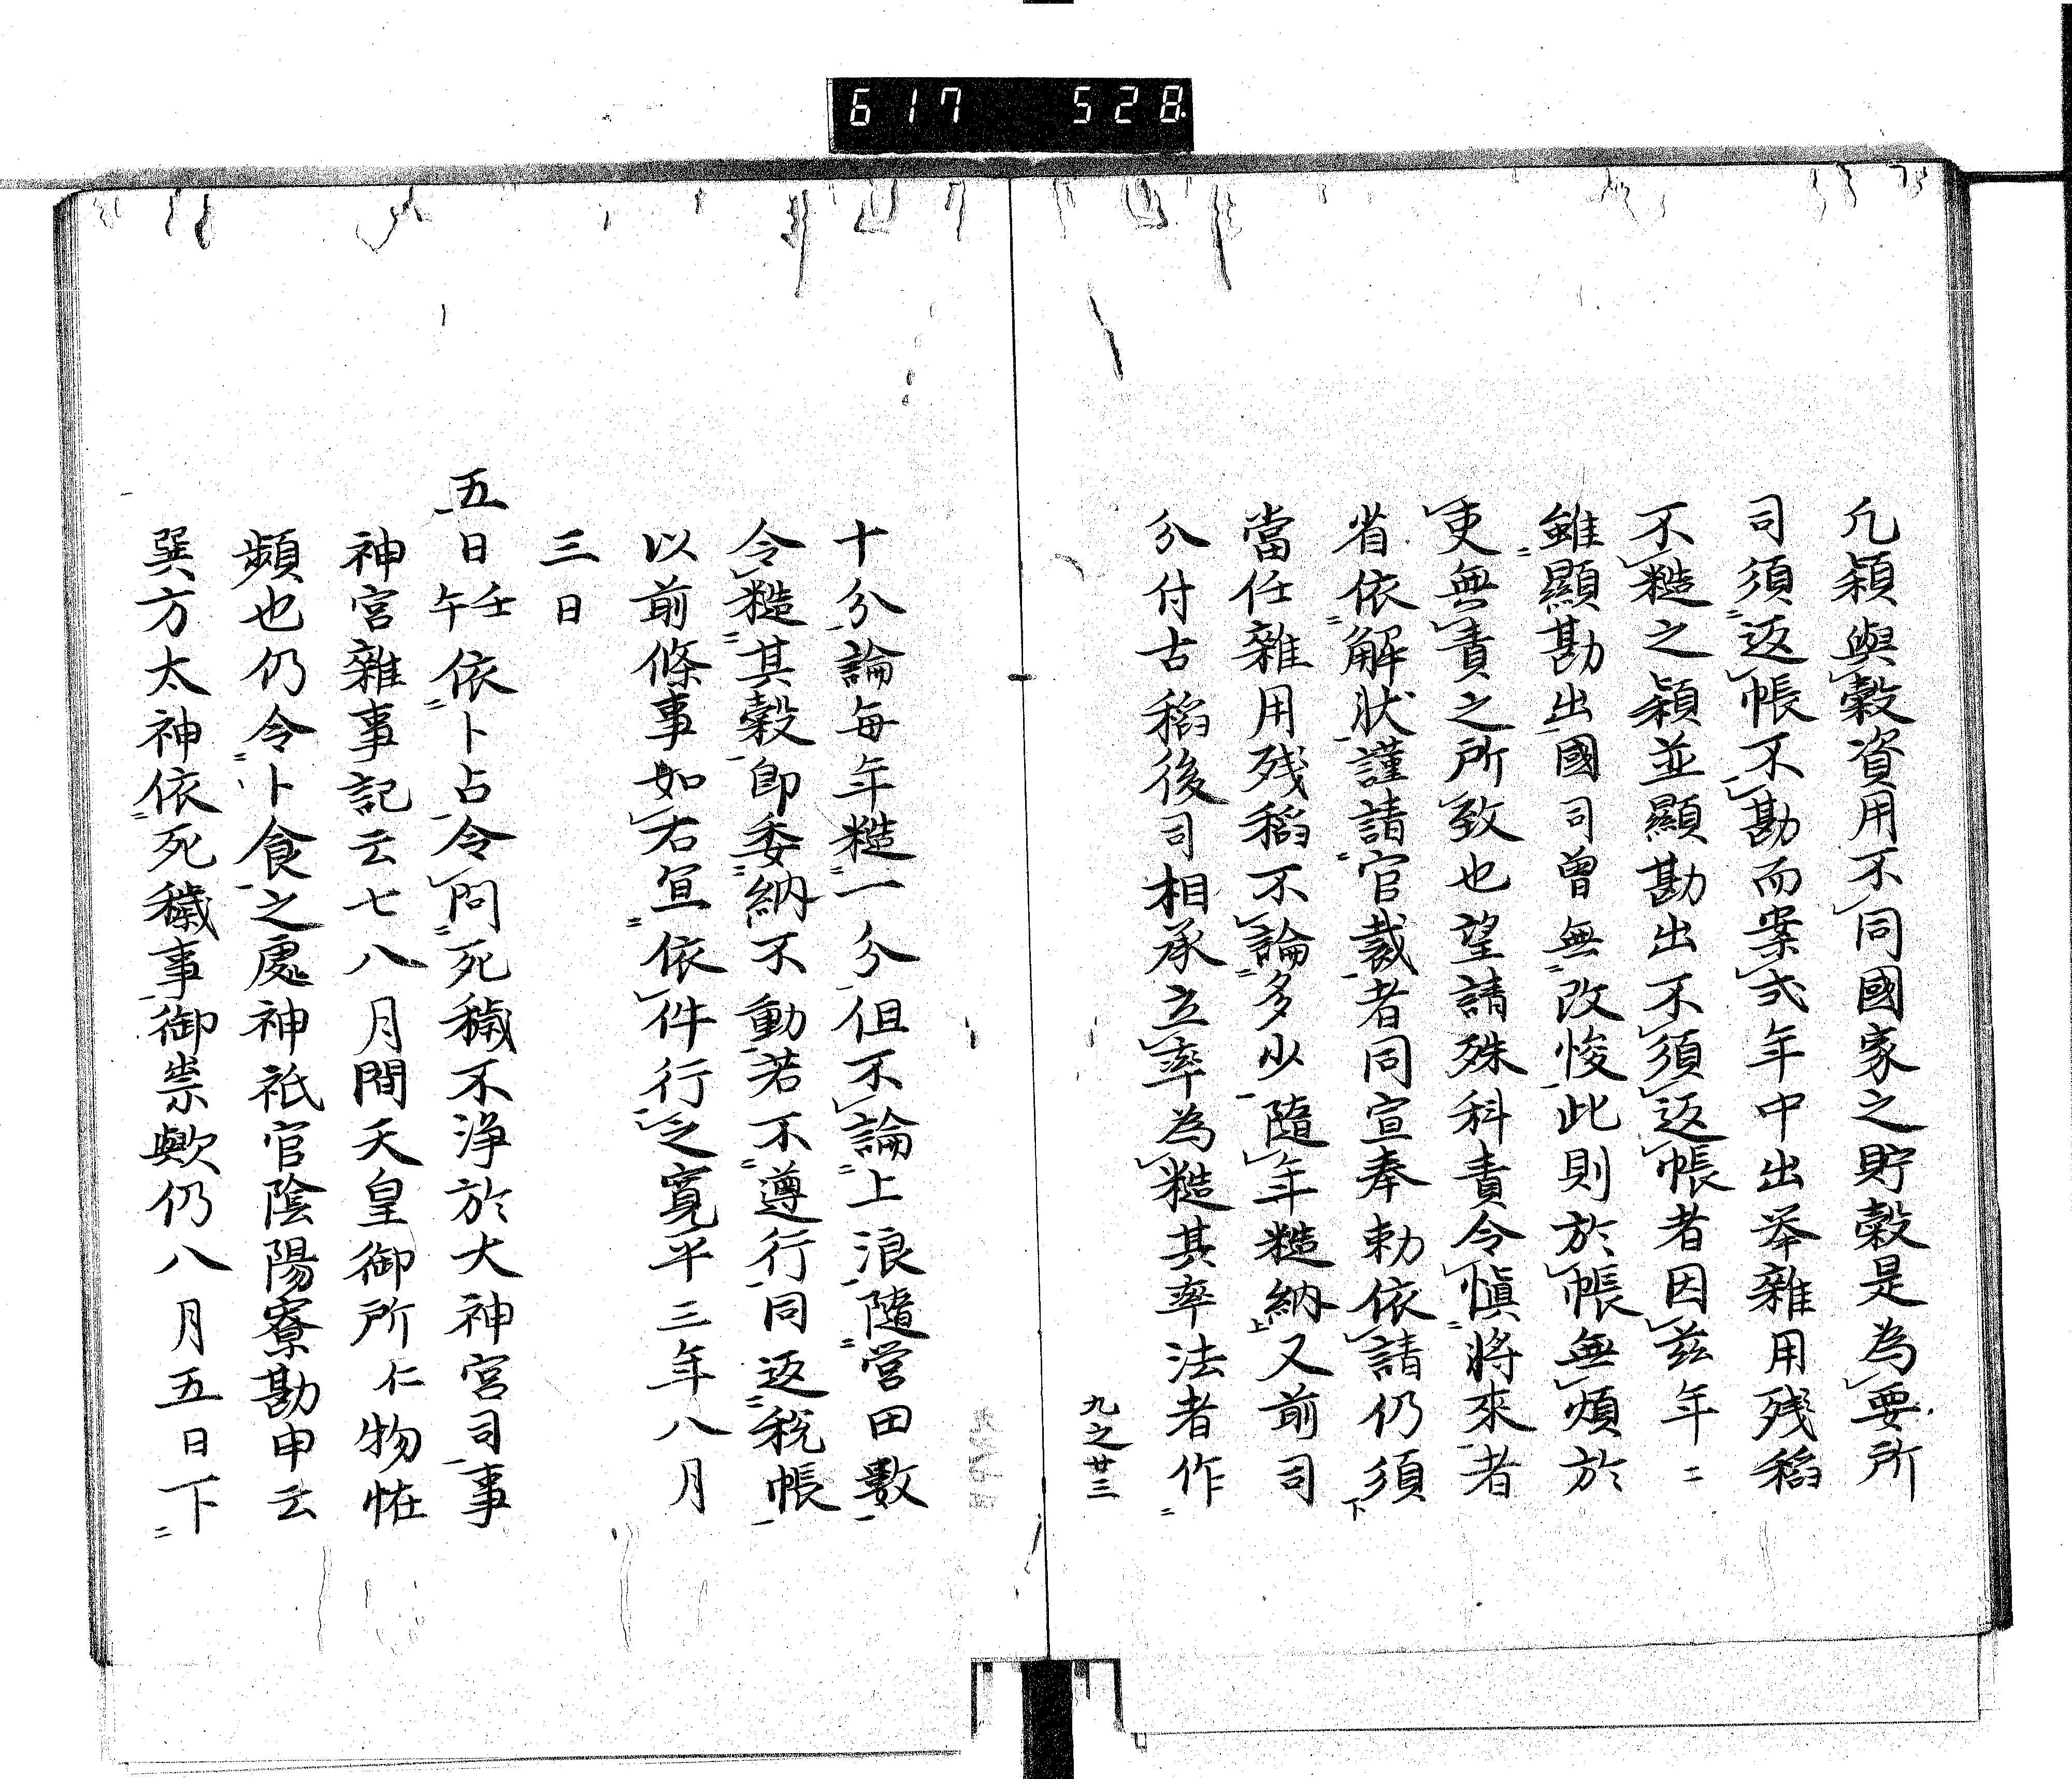 617 528
凡穎與穀資用不同國家之貯穀是為要所
司須返帳不勘而案弐年中出挙雜用残稻
不糙之穎並顯勘出不須返帳者因茲年〻
雖顯勘出國司曽無改悛此則於帳無煩於
吏無責之所致也望請殊科責令愼將來者
省依解狀謹請官裁者同宣奉勅依請仍須
當任雜用残稻不論多少隨年糙納又前司
分付古稻後司相承立率為糙其率法者作
九之廿三
十分論每年糙一分但不論上浪隨営田數
令糙其穀即委納不動若不遵行同返税帳
以前條事如右宣依件行之寛平三年八月
三日
五日壬午依卜占令問死穢不浄於大神宮司事
神宮雜事記云七八月間天皇御所仁物恠
頻也仍令卜食之處神祇官陰陽寮勘申云
巽方太神依死穢事御祟歟仍八月五日下